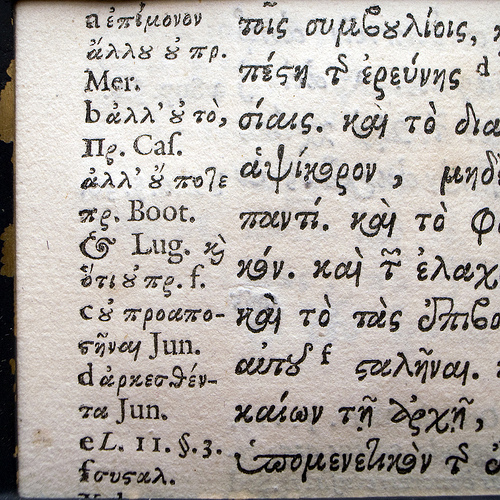 a ἐπίμονον
ἄλλου οὐ πρ.
Mer.
b ἀλλ' οὐ τὸ,
Πρ. Cas.
ἀλλ' οὔ ποτε
πρ. Boot.
& Lug. καὶ
ὅτι οὐ πρ. f.
c οὐ προαπο-
στῆναι Jun.
d ἀρκεσθέν-
τα Jun.
e L. 11. §. 3.
f συσταλ.
τοῖς συμβουλίοις,
πέστη τοῦ ἐρεύνης d
σίαις. καὶ τὸ δια
ἀψίκορον, μηδὲ
παντί. καὶ τὸ φα
κόν. καὶ τοῦ ἐλαχ
καὶ τὸ τὰς ἐπιβο
αὐτοῦ f σταλῆναι.
καίων τῇ ἀρχῇ,
ὑπομενετικὸν τοῦ